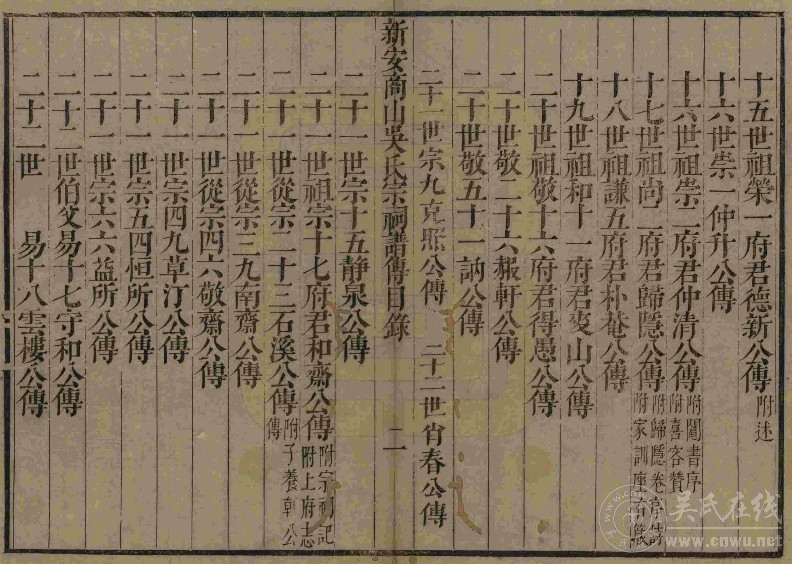 十五世祖榮一府君德新公傳附述
十六世崇一仲升公傳
十六世祖崇二府君仲清公傳附鬮書序附喜容贊
十七世祖尚一府君歸隱公傳附歸隱卷序詩附家訓座右箴
十八世祖謙五府君朴菴公傳
十九世祖和十一府君夌山公傳
二十世祖敬十六府君得愚公傳
二十世敬二十六報軒公傳
二十世敬五十一訥公傳
二十一世宗九克熙公傳 二十二世肖春公傳
新安商山吳氏宗祠譜傳目錄 二
二十一世宗十五靜泉公傳
二十一世祖宗十七府君和齋公傳附宗祠記附上府志
二十一世從宗二十三石溪公傳附子養乾公傳
二十一世從宗三九南齋公傳
二十一世從宗四六敬齋公傳
二十一世宗四九草汀公傳
二十一世宗五四恒所公傳
二十一世宗六六益所公傳
二十二世伯父易十七守和公傳
二十二世 易十八雲樓公傳
吴氏在线
www.cnwu.net